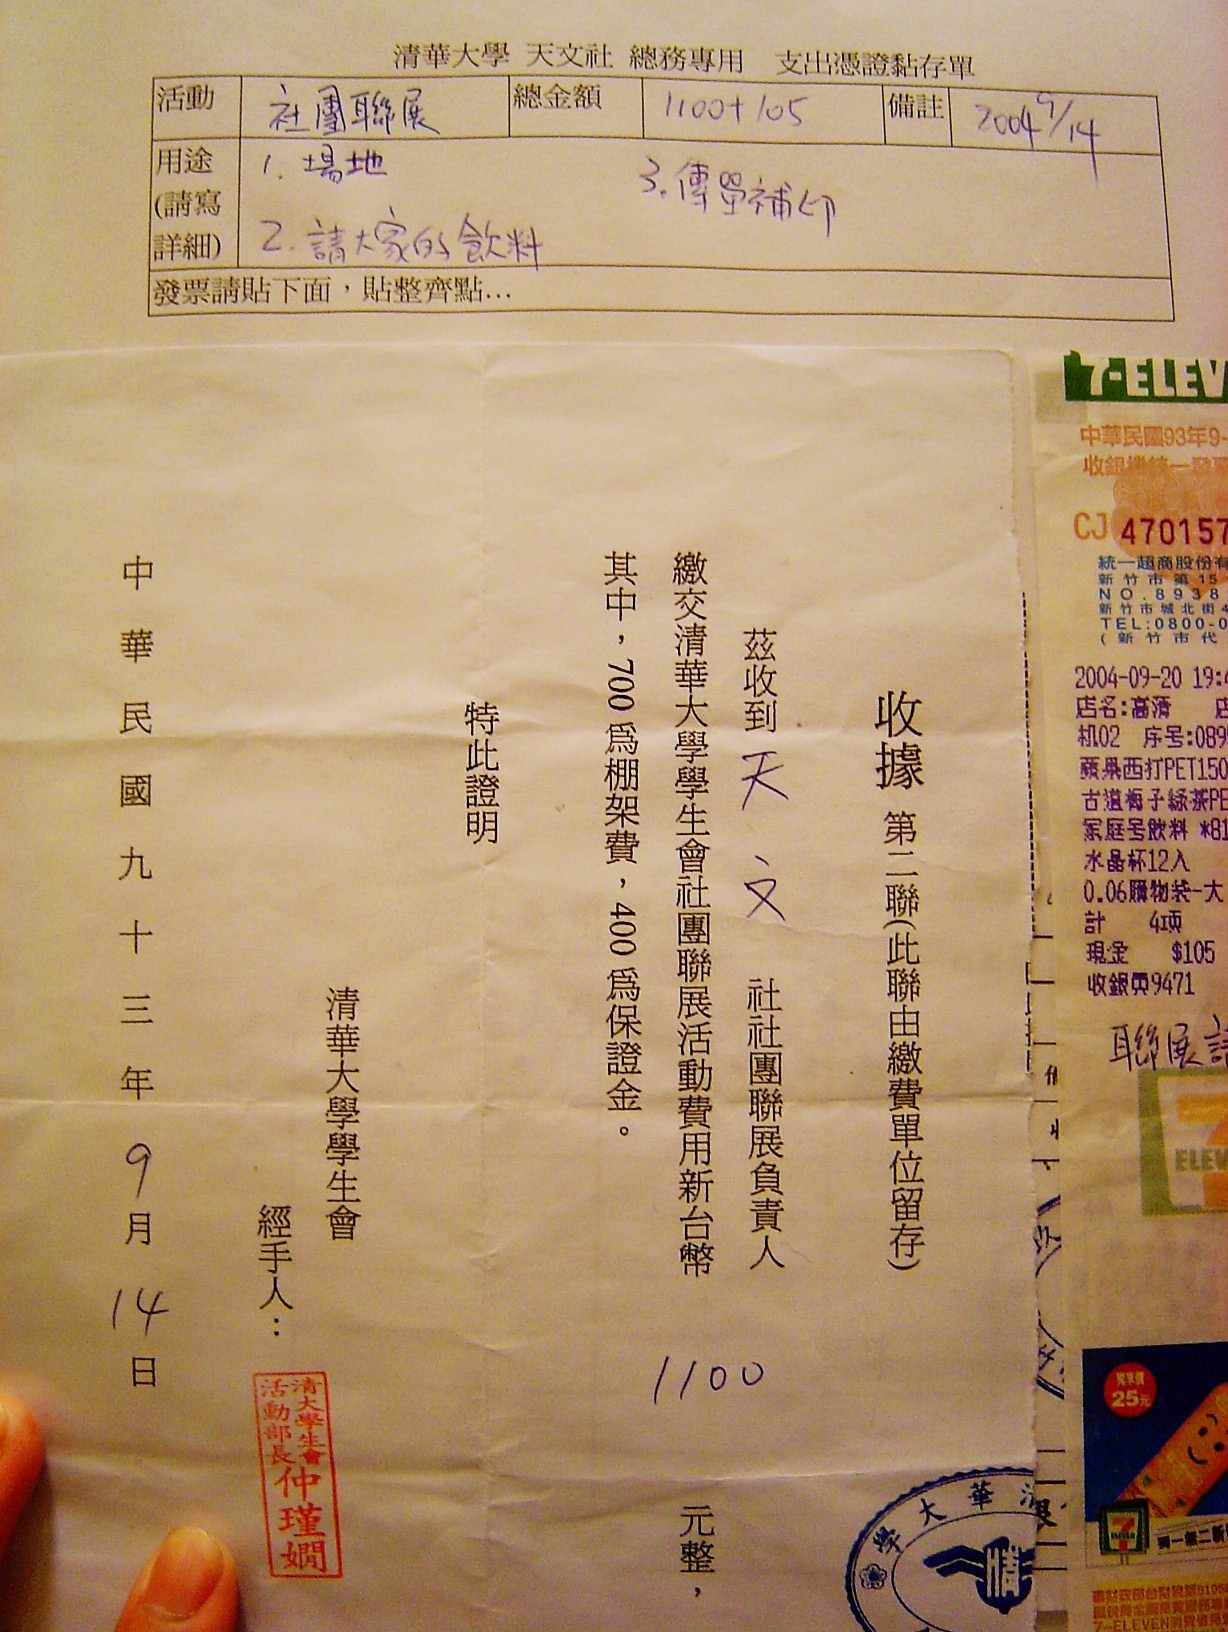 清華大學 天文社 總務專用 支出憑證黏存單
活動 社團聯展 總金額 1100+105 備註 2004 9/14
用途(請寫詳細)
1. 場地
2. 請大家的飲料
3. 傳單補印
發票請貼下面，貼整齊點...
收據 第二聯(此聯由繳費單位留存)
茲收到 天文 社社團聯展負責人
繳交清華大學學生會社團聯展活動費用新台幣 1100 元整，
其中，700為棚架費，400為保證金。
特此證明
清華大學學生會
經手人：
清大學生會
活動部長
仲瑾嫺
中華民國九十三年9月14日
學大華清
7-ELEV
中華民國93年9-
收銀機統一發票
CJ 470157
統一超商股份有
新竹市第15
NO.8938
新竹市城北街4
TEL:0800-0
(新竹市代
2004-09-20 19:4
店名:高清 店
机02 序号:089
蘋果西打PET150
古道梅子綠茶PE
家庭号飲料 *81
水晶杯12入
0.06購物袋-大
計 4項
現金 $105
收銀員9471
聯展請
7
ELEVE
25元
7-ELEVEN